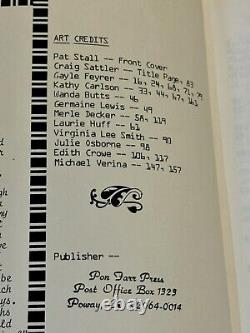 ART CREDITS
Pat Stall -- Front Cover
Craig Sattler -- Title Page, 83
Gayle Feyrer -- 16, 24, 68, 71, 79
Kathy Carlson -- 33, 44, 67, 163
Wanda Butts -- 46
Germaine Lewis -- 49
Merle Decker -- 58, 119
Laurie Huff -- 61
Virginia Lee Smith -- 90
Julie Osborne -- 98
Edith Crowe -- 106, 117
Michael Verina -- 147, 157
Publisher --
Pon Farr Press
Post Office Box 1323
Poway, 92064-0014